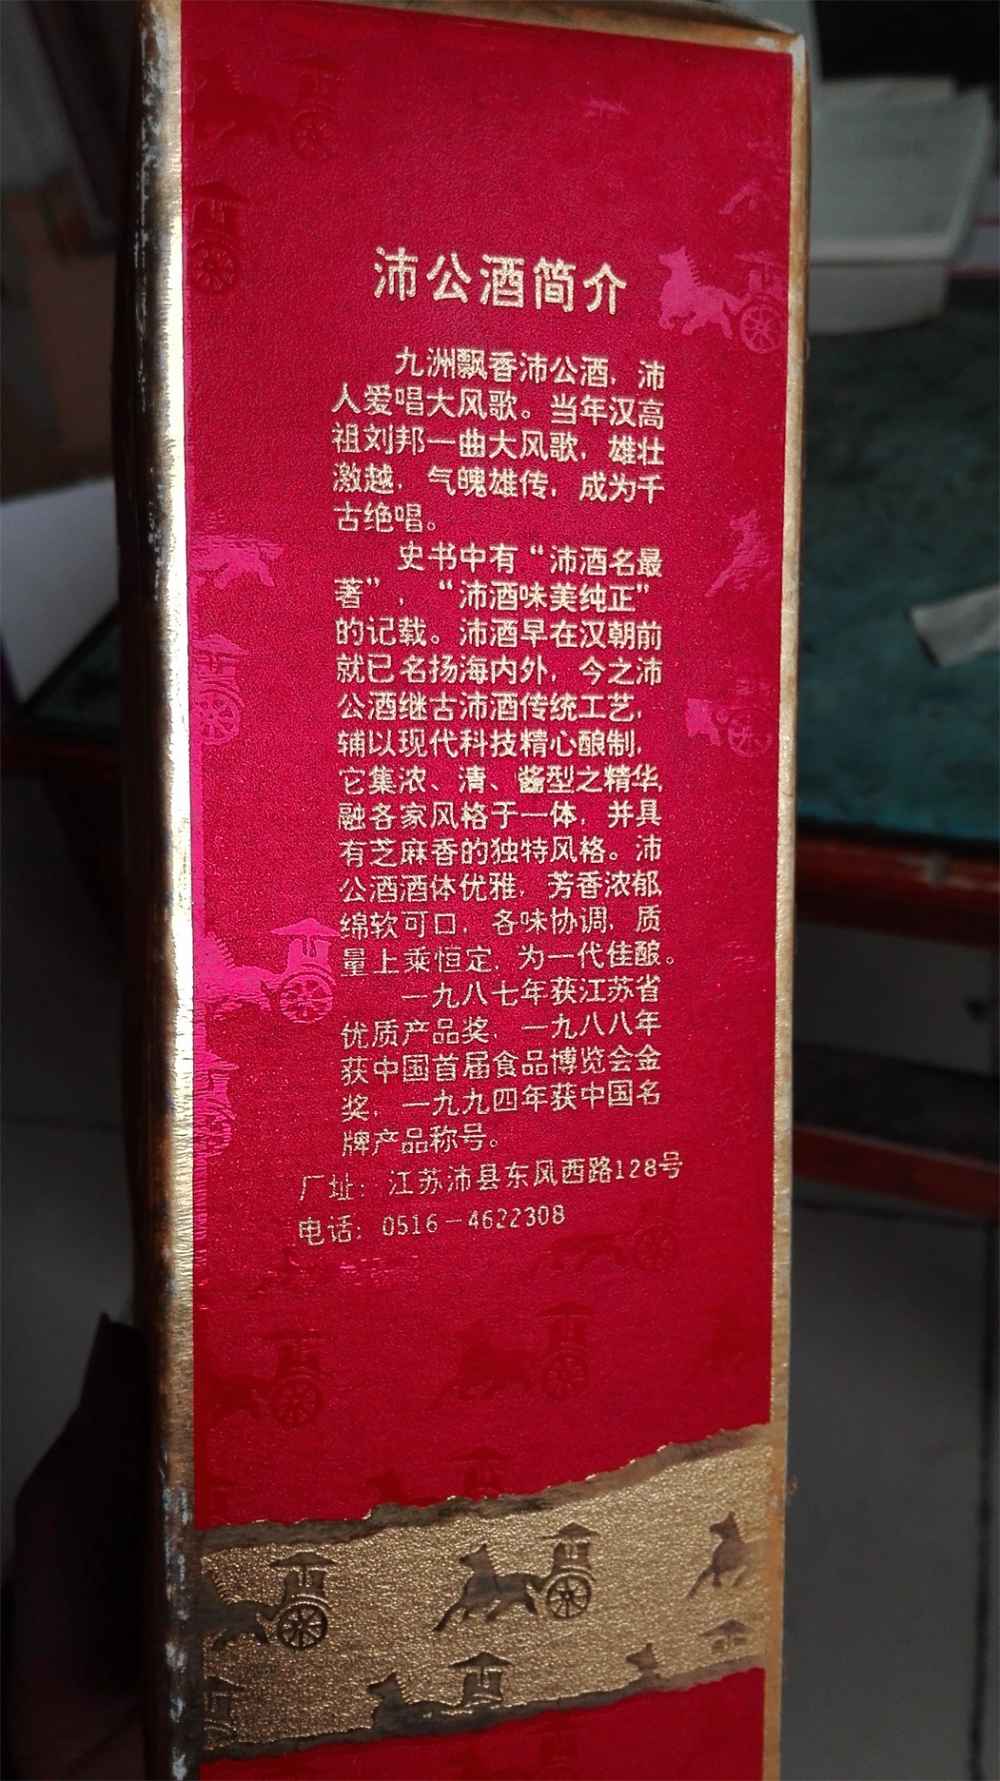 沛公酒简介
九洲飘香沛公酒，沛
人爱唱大风歌。当年汉高
祖刘邦一曲大风歌，雄壮
激越，气魄雄传，成为千
古绝唱。
史书中有“沛酒名最
著”，“沛酒味美纯正”
的记载。沛酒早在汉朝前
就已名扬海内外，今之沛
公酒继古沛酒传统工艺，
辅以现代科技精心酿制，
它集浓、清、酱型之精华，
融各家风格于一体，并具
有芝麻香的独特风格。沛
公酒酒体优雅，芳香浓郁，
绵软可口，各味协调，质
量上乘恒定，为一代佳酿。
一九八七年获江苏省
优质产品奖，一九八八年
获中国首届食品博览会金
奖，一九九四年获中国名
牌产品称号。
厂址：江苏沛县东风西路128号
电话：0516－4622308